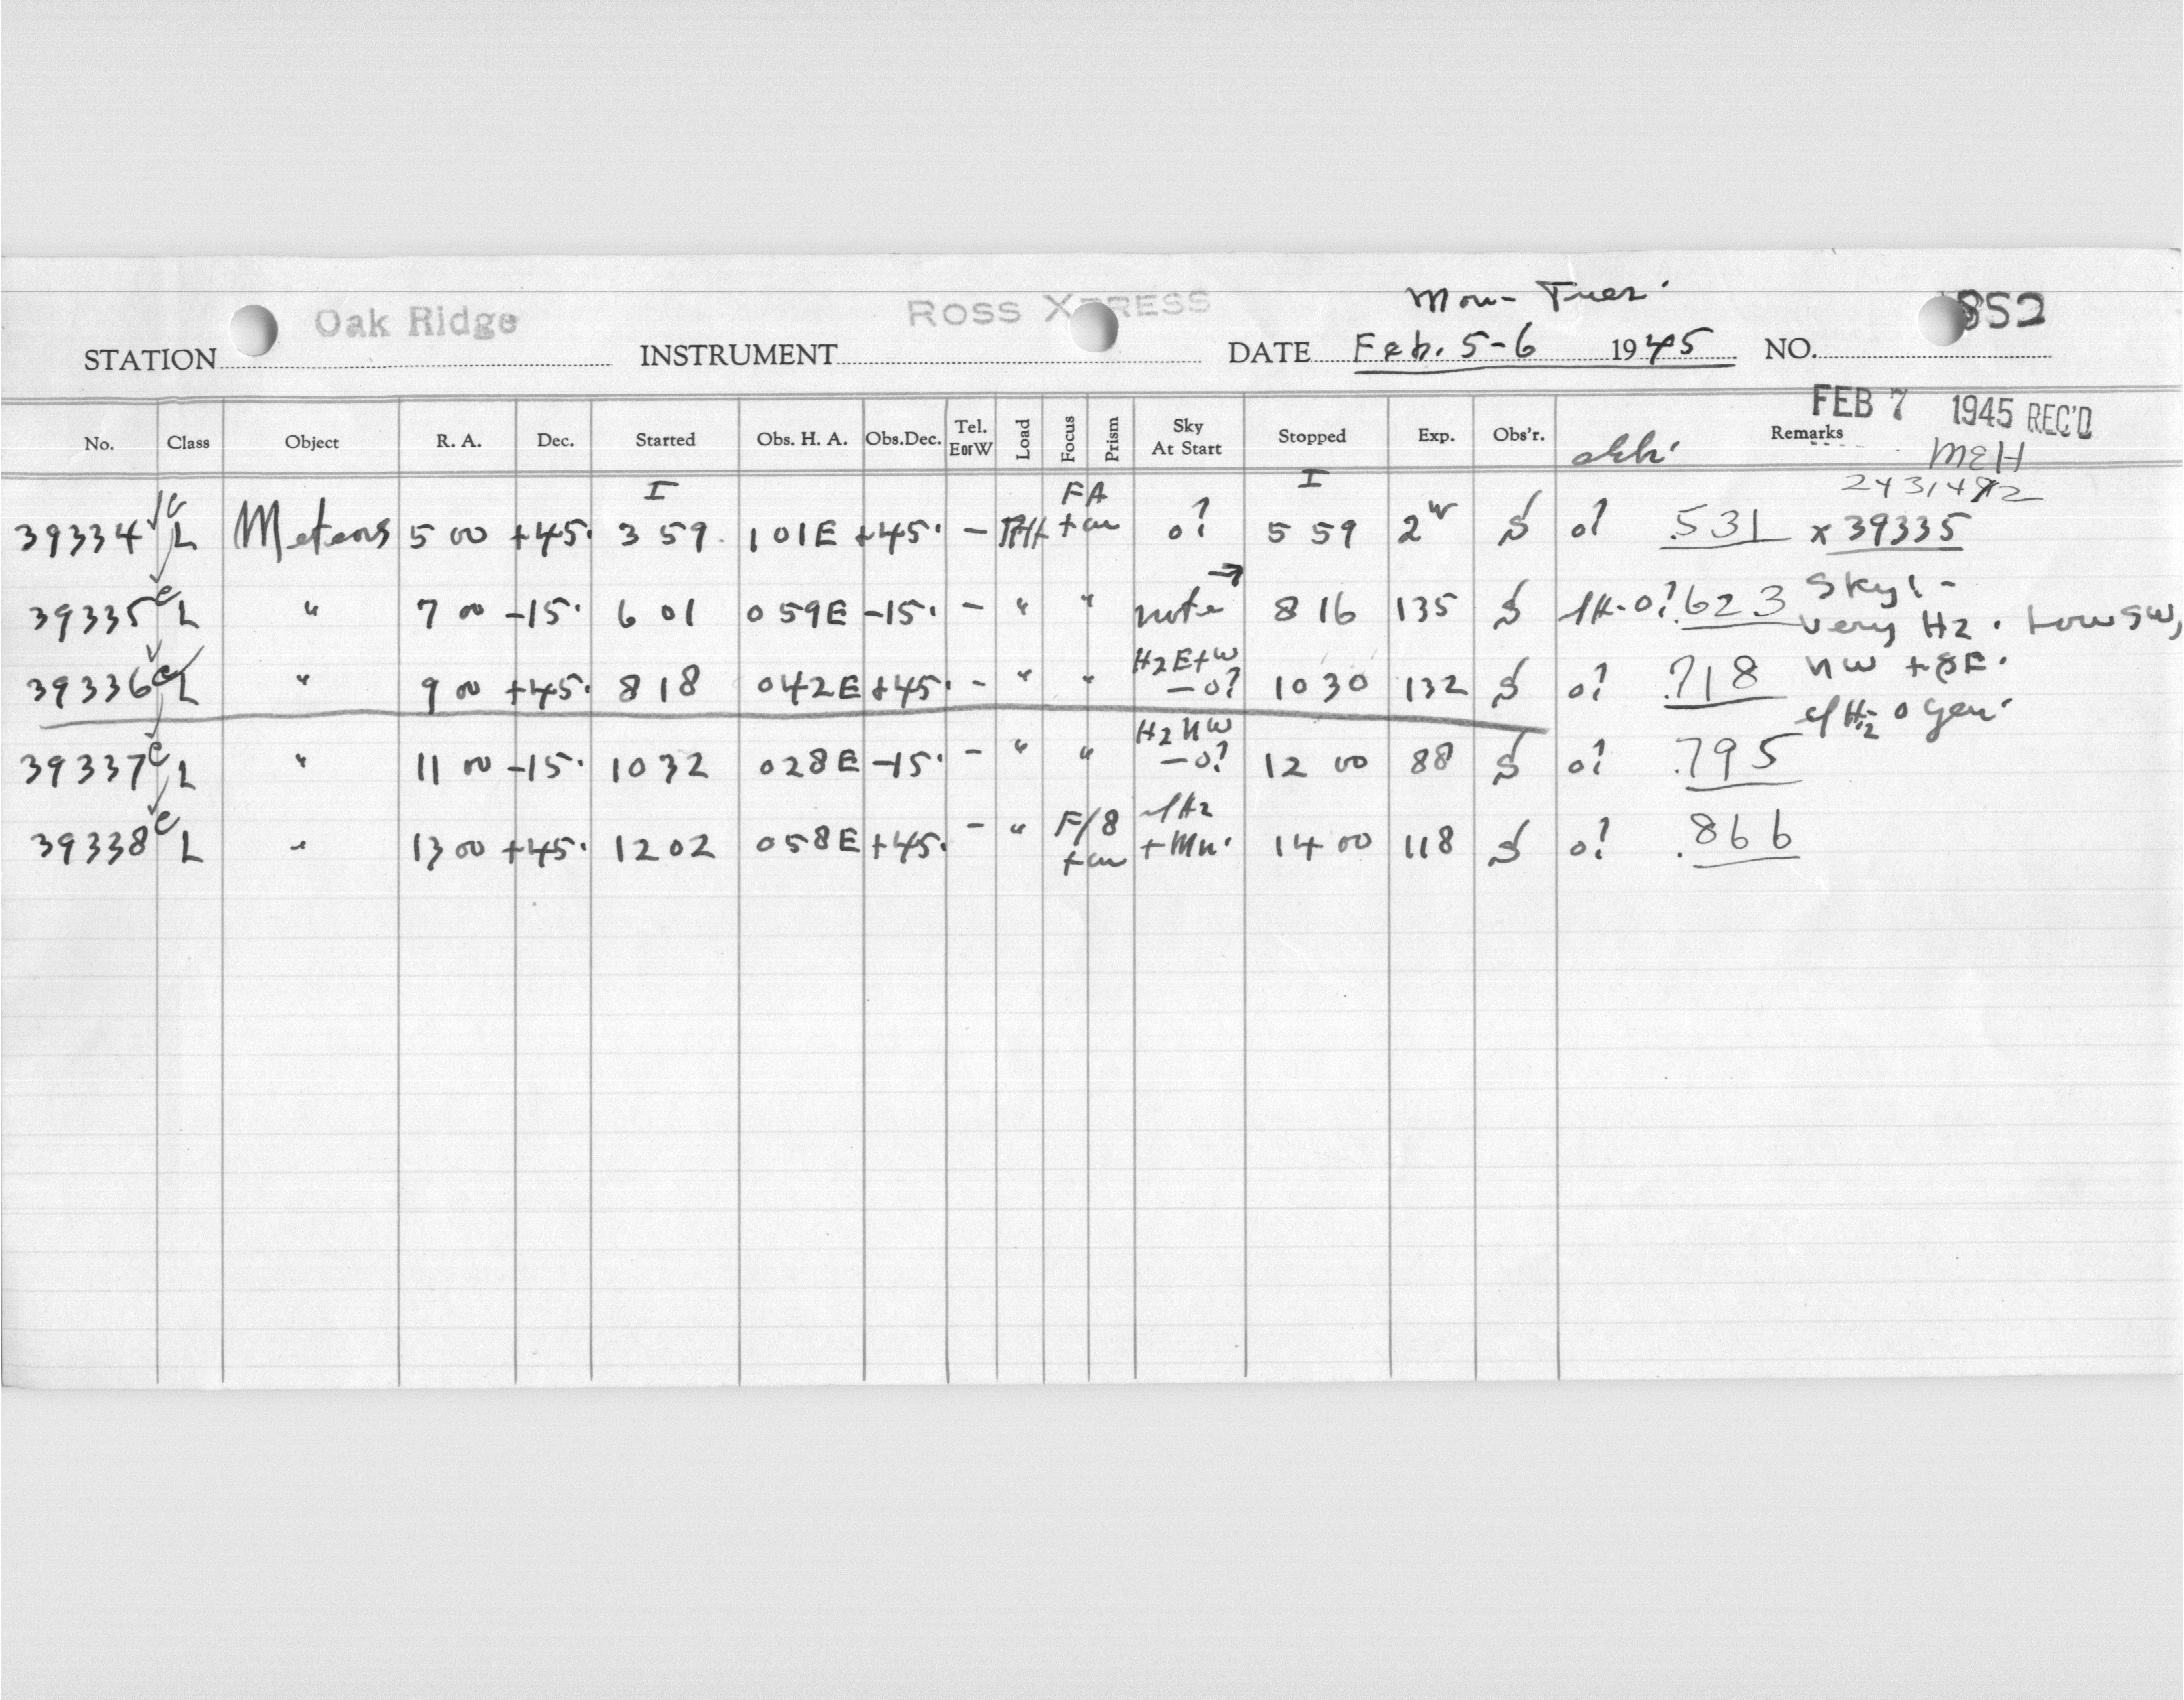 Mon- Tues.
Oak Ridge ROSS XPRESS 852
STATION INSTRUMENT DATE Feb. 5-6 1945 NO.
FEB 7 1945 REC'D
No. Class Object R. A. Dec. Started Obs. H. A. Obs.Dec. Tel. EorW Load Focus Prism Sky At Start Stopped Exp. Obs'r. Remarks
MEH
I FA I
39334 c L Meteors 5 00 +45. 3 59. 1 01E +45. - + o? 5 59 2 S o? .531 x 39335
39335 c L " 7 00 -15. 6 01 0 59E -15. - " " note → 8 16 135 S o? .623 Sky! - very Hz. Low SW,
39336 c L " 9 00 +45. 8 18 0 42E +45. - " " Hz E+W - o? 10 30 132 S o? .718 NW + SE.
Hz o gen.
39337 c L " 11 00 -15. 10 32 0 28E -15. - " " Hz NW - o? 12 00 88 S o? .795
39338 c L " 13 00 +45. 12 02 0 58E +45. - " F/8 Hz + Mn. 14 00 118 S o? .866